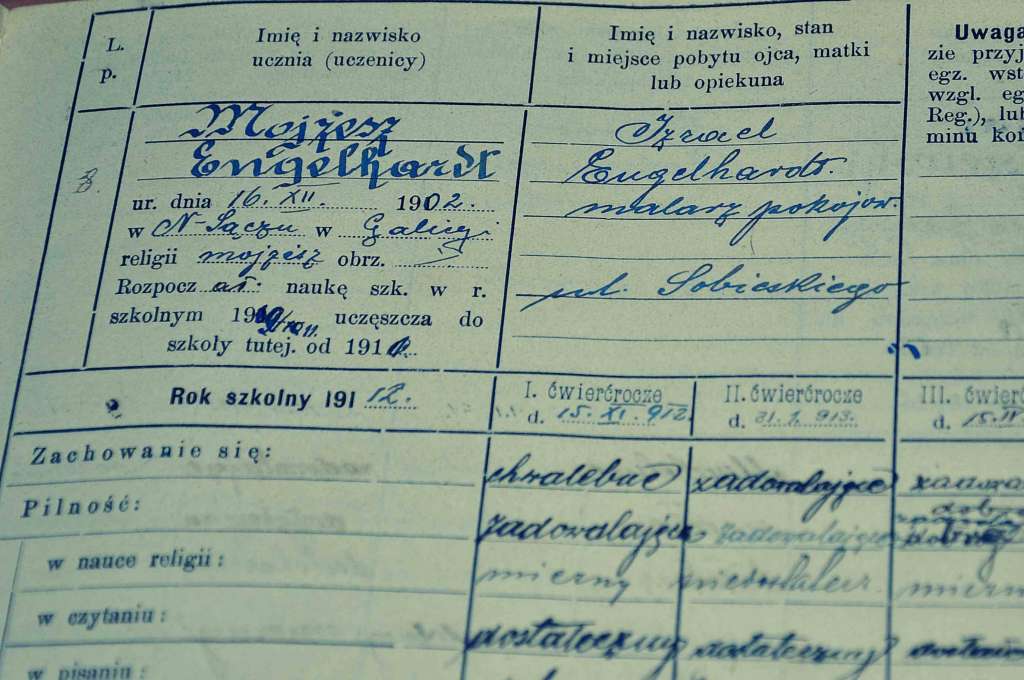 L. p.
Imię i nazwisko
ucznia (uczenicy)
Imię i nazwisko, stan
i miejsce pobytu ojca, matki
lub opiekuna
Uwaga
zie przyj
egz. wst
wzgl. eg
Reg.), lub
minu kon
3.
Mojżesz
Engelhardt
ur. dnia 16. XII. 1902.
w N-Sączu w Galicyi
religii mojżesz obrz.
Rozpocz ął: naukę szk. w r.
szkolnym 19 uczęszcza do
szkoły tutej. od 191
Izrael
Engelhardt.
malarz pokojow.
ul. Sobieskiego
Rok szkolny 191 12.
I. ćwierćrocze
d. 15. XI. 912.
II. ćwierćrocze
d. 31. 1. 913.
III. ćwierć
d. 15. IV
Zachowanie się:
chwalebne zadowalające
Pilność:
zadowalająca zadowalająca dobra
w nauce religii:
mierny niedostatecz. miern
w czytaniu:
dostateczny dostateczny
w pisaniu: